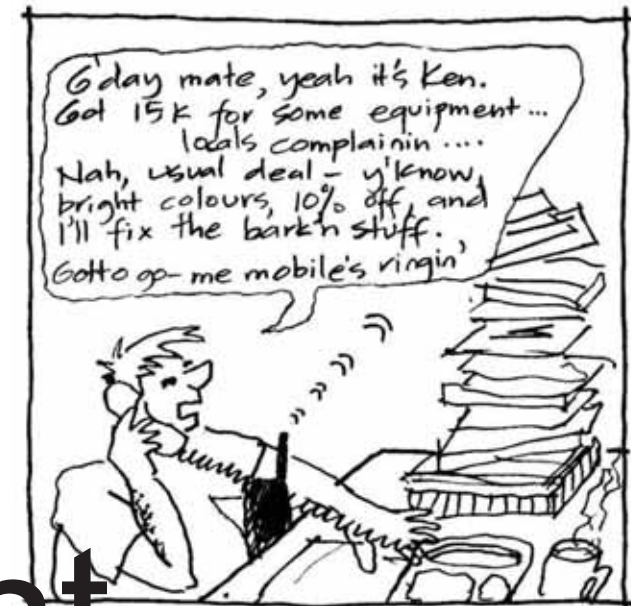 G'day mate, yeah it's Ken.
Got 15K for some equipment...
locals complainin ....
Nah, usual deal - y'know,
bright colours, 10% off, and
I'll fix the bark'n stuff.
Gotto go - me mobile's ringin'